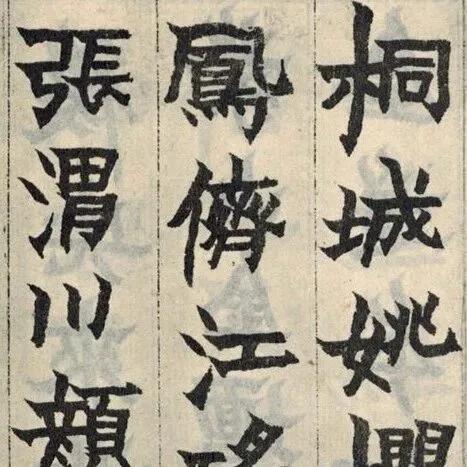 桐城姚
鳳儕江
張渭川